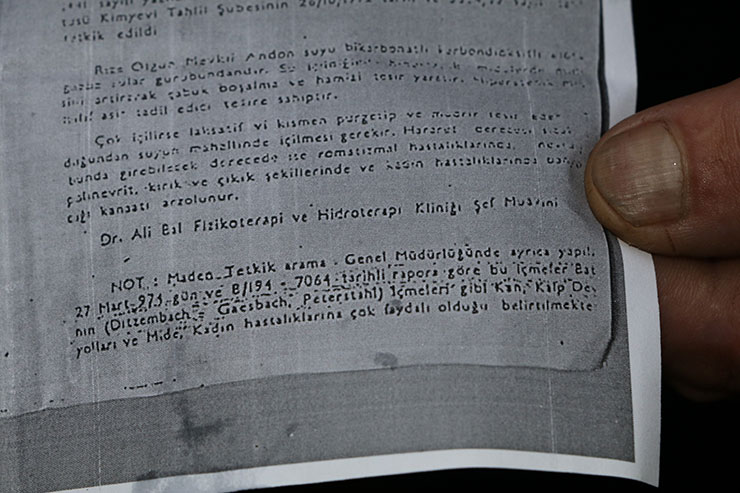 tüsü Kimyevi Tahlil Şubesinin 26/10/1972
tetkik edildi
Rıza Olgun Mevkii Andon suyu bikarbonatlı karbondioksitli
gazöz sular gurubundandır. Su içildiğinde
sini artırarak çabuk boşalma ve hamızi tesir yaratır.
asit tadil edici tesire sahiptir.
Çok içilirse laksatif vi kısmen pürgetip ve müdrir tesir
duğundan suyun mahallinde içilmesi gerekir. Hararet derecesi
bunda girebilecek derecede ise romatizmal hastalıklarında,
polinevrit, kırık ve çıkık şekillerinde ve kadın hastalıklarında banyo
cığı kanaati arzolunur.
Dr. Ali Bal Fizikoterapi ve Hidroterapi Kliniği Şef Muavini
NOT : Maden Tetkik arama Genel Müdürlüğünde ayrıca yapıl.
27 Mart 973 gün ve B/194 - 7064 tarihli rapora göre bu içmeler Bat
nın (Ditzembach = Gaesbach, Peterstahl) içmeleri gibi Kan, Kalp De
yolları ve Mide, Kadın hastalıklarına çok faydalı olduğu belirtilmekte